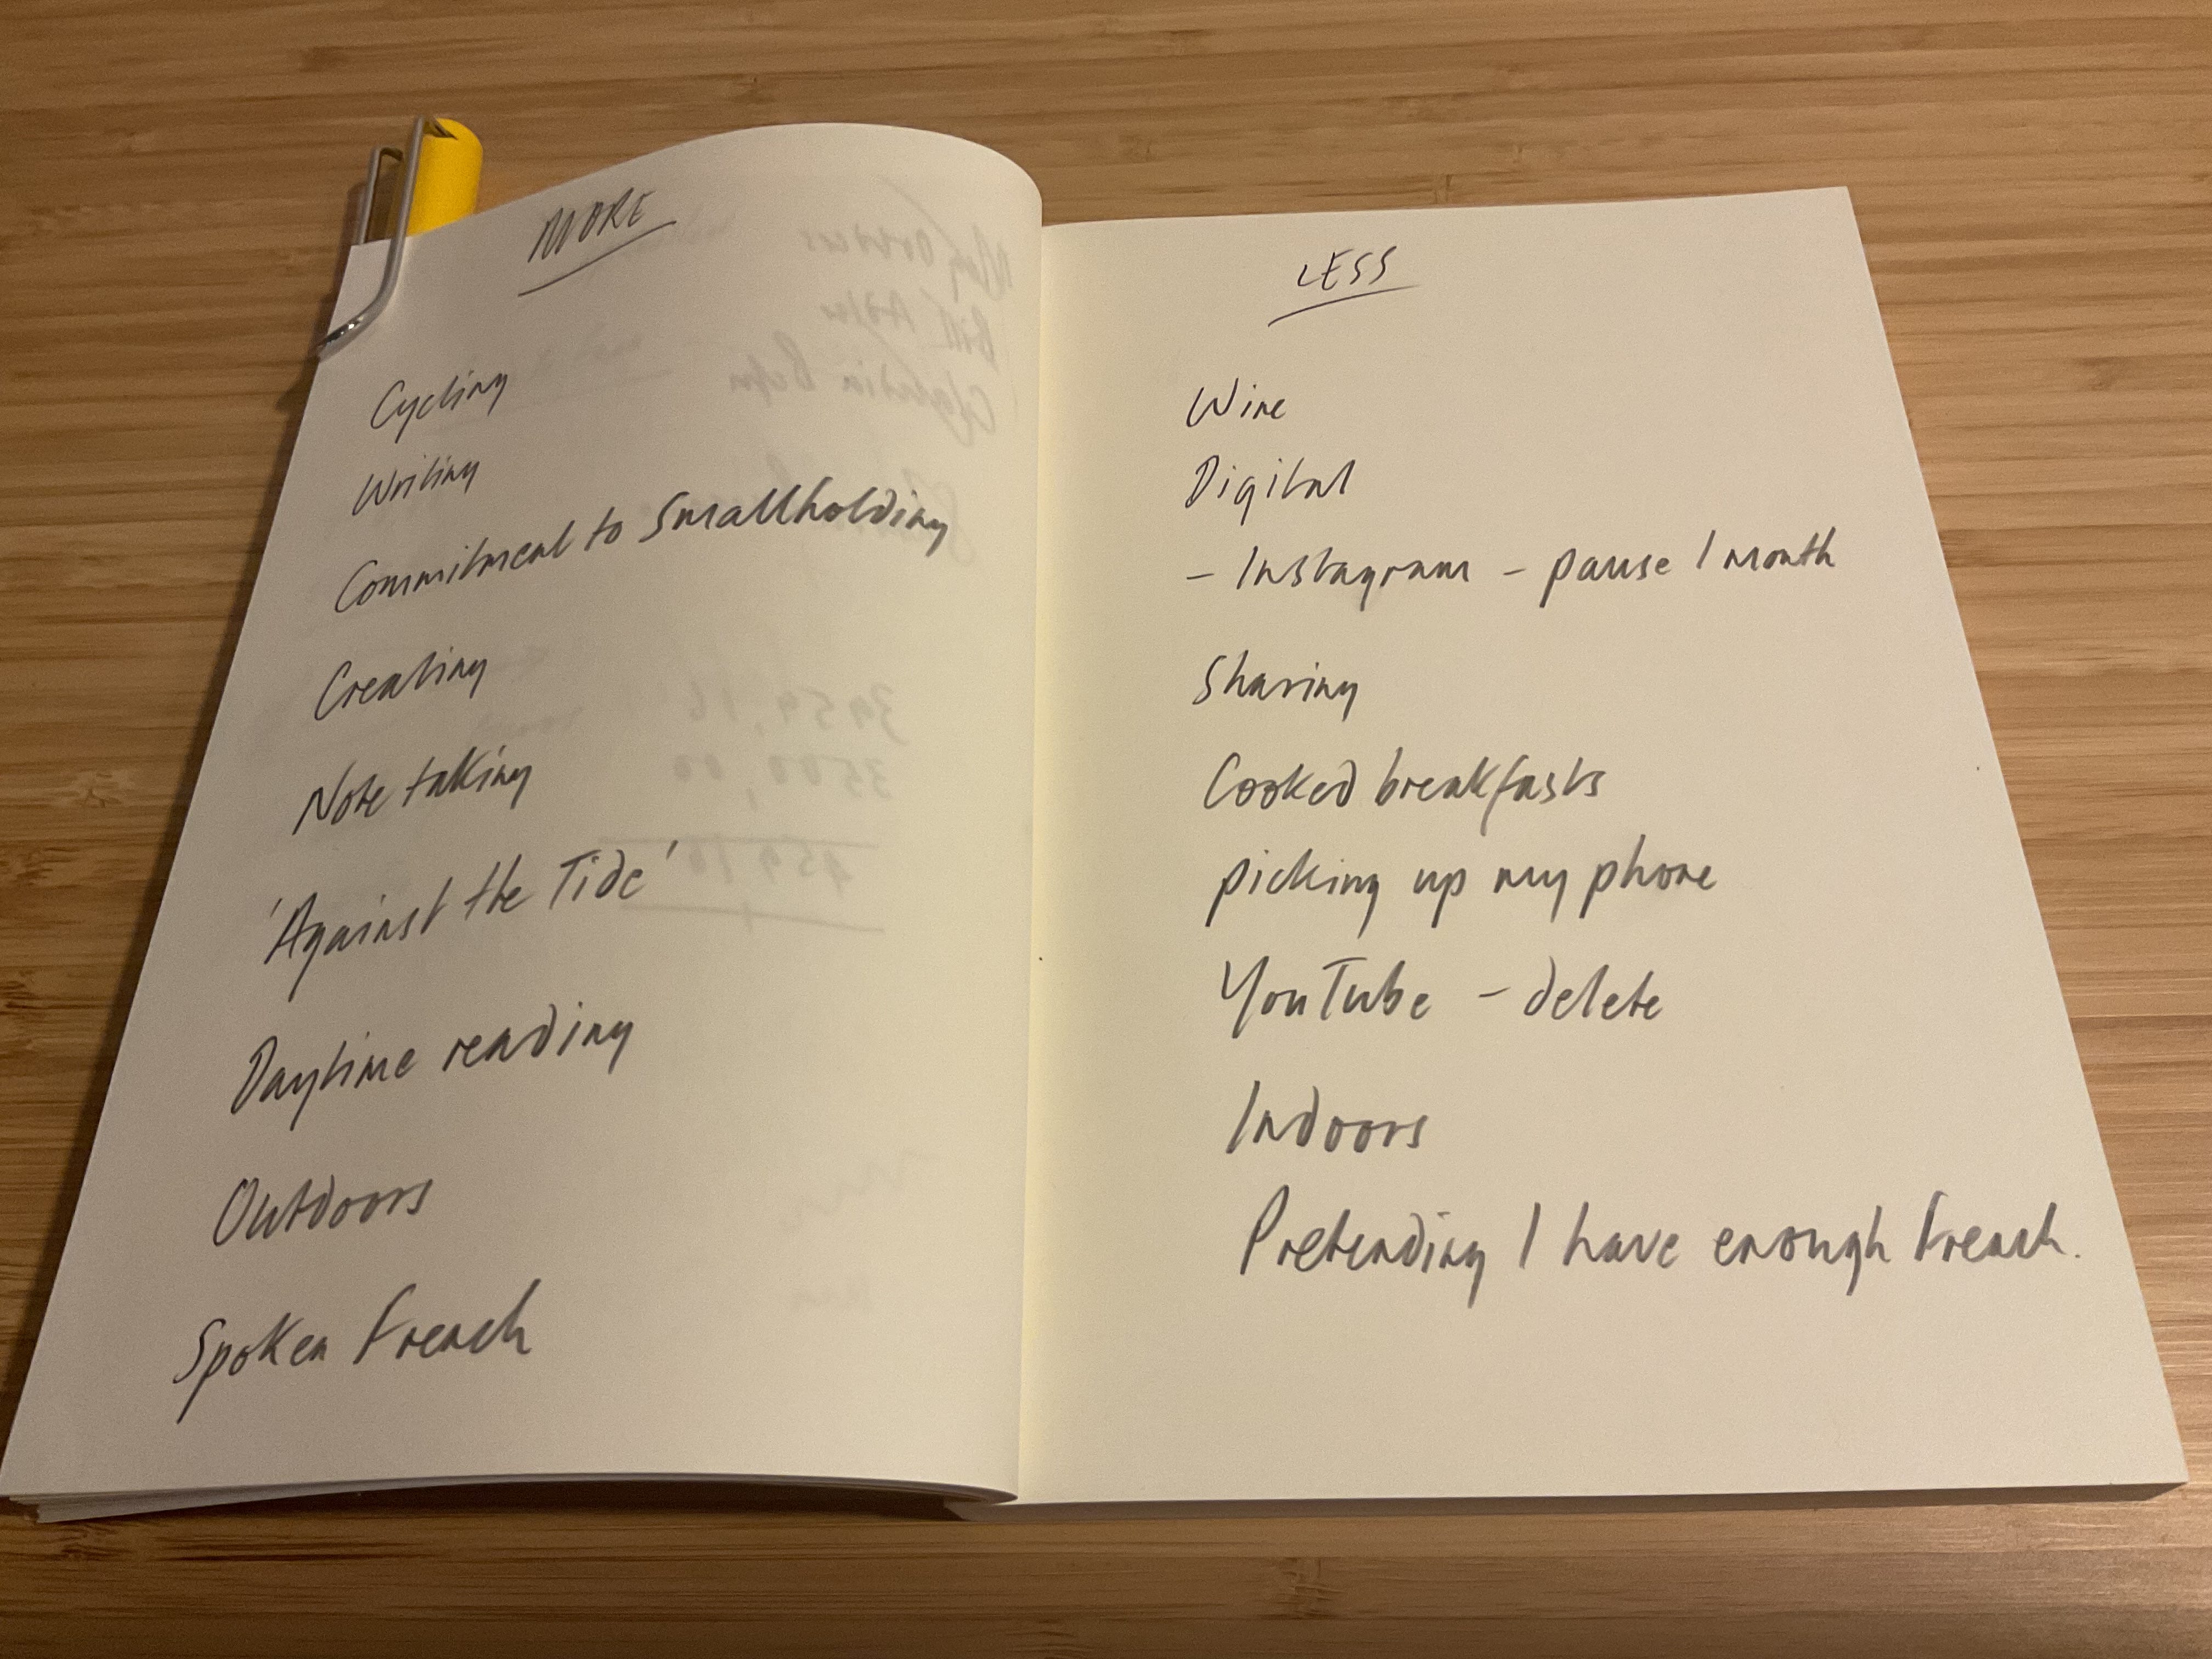 MORE
Cycling
Writing
Commitment to Smallholding
Creating
Note taking
'Against the Tide'
Daytime reading
Outdoors
Spoken French
LESS
Wine
Digital
- Instagram - pause 1 month
Sharing
Cooked breakfasts
picking up my phone
YouTube - delete
Indoors
Pretending I have enough French.